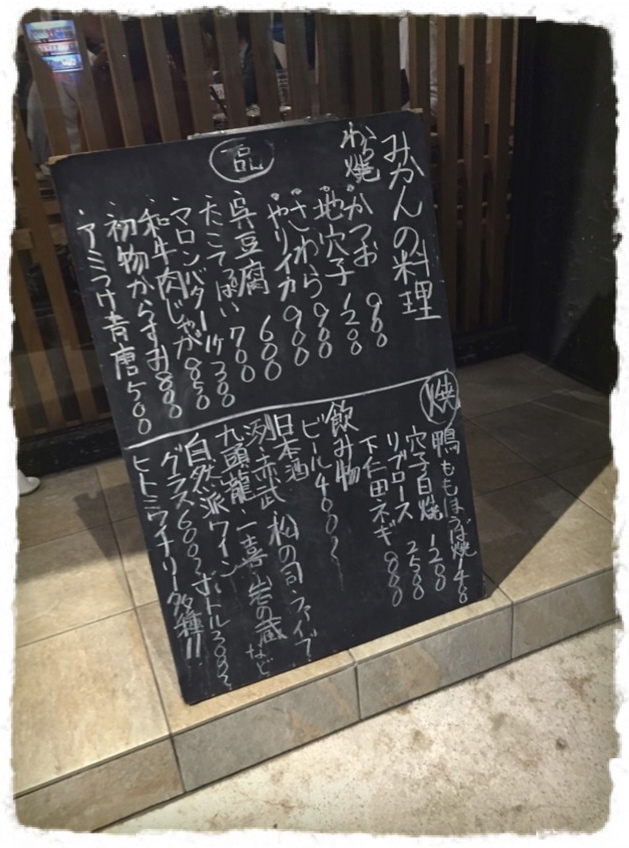 みかんの料理
わら焼
・かつお 980
・地穴子 1280
・さわら 980
・やりイカ 900
一品
・呉豆腐 600
・たこてっぱい 700
・マロンバター 1ヶ300
・和牛肉じゃが 850
・初物からすみ 800
・アミつけ青唐 500
焼
鴨ももほうば焼 1480
穴子白焼 1280
リブロース 2580
下仁田ネギ 880
飲み物
ビール400〜
日本酒
赤武 松の司 ファイブ
九頭龍 一喜 岩の蔵など
自然派ワイン
グラス600〜 ボトル3000〜
ヒトミワイナリー多種!!